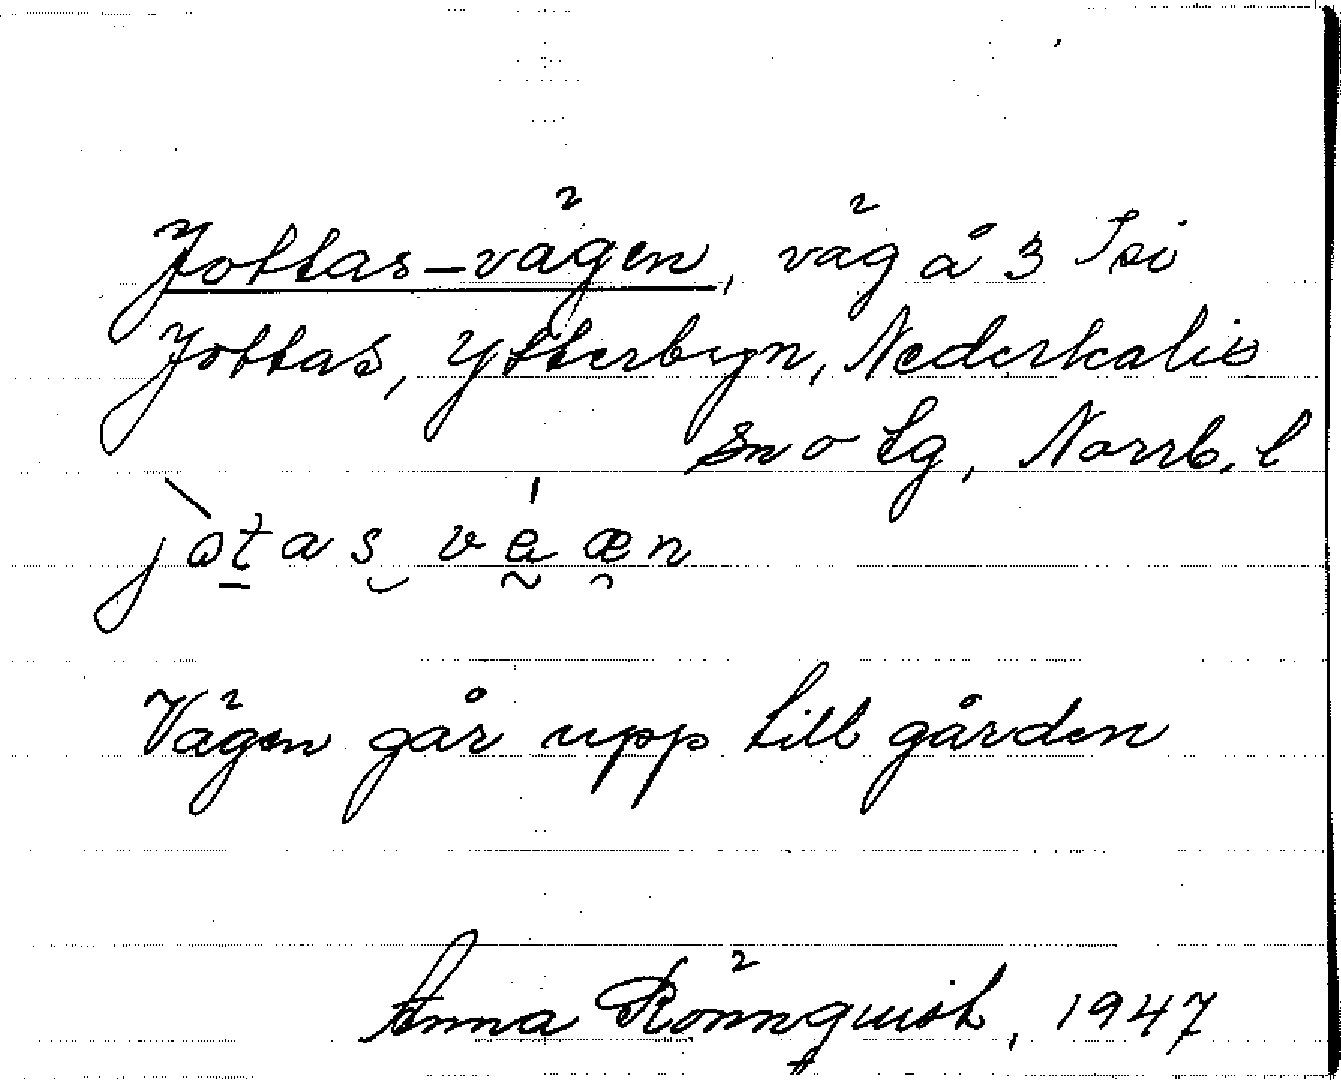 Jottas-vägen, väg å 3 Tsi
Jottas, Ytterbyn, Nederkalix
sn o tg, Norrb. l
jòtas véæn
Vägen går upp till gården
Anna Rönnquist, 1947